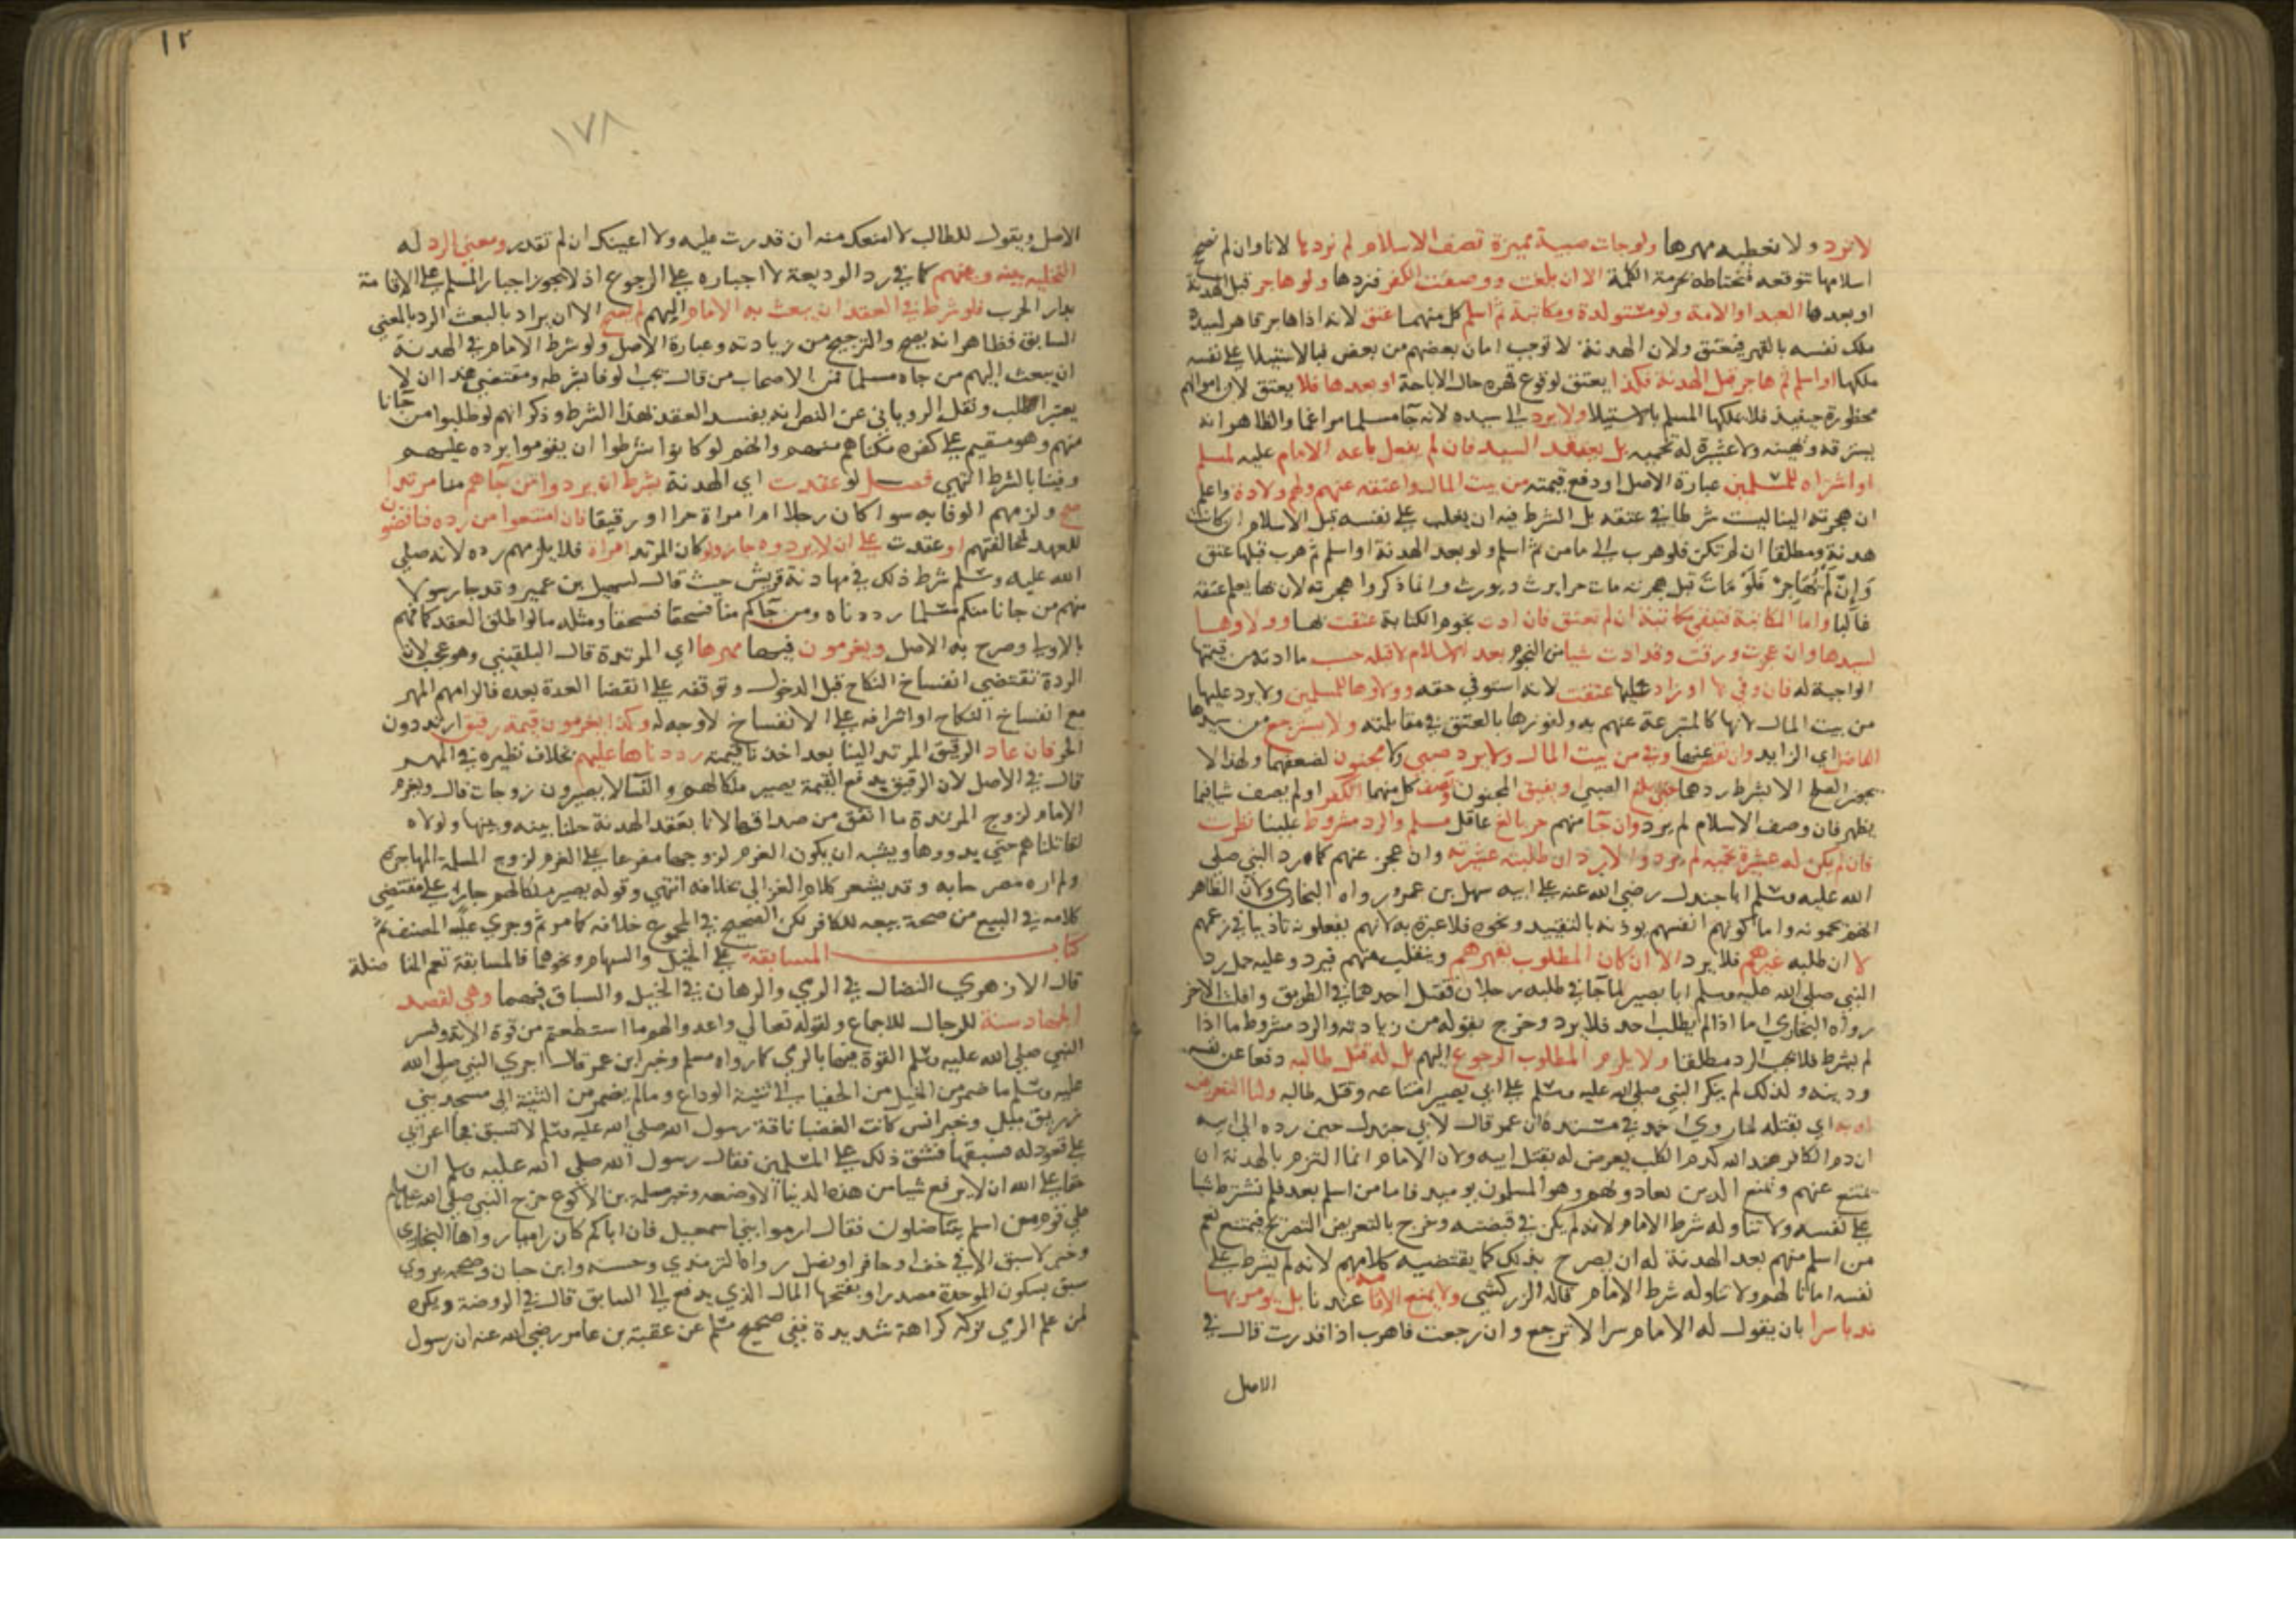 لا نرد ولا نعطيه مهرها ولو جات صبية مميزة تصف الاسلام لم نردها لانا وان لم نصحح
اسلامها نتوقعه فنحتاط لحرمة الكلمة الا ان بلغت ووصفت الكفر فنردها ولو هاجر قبل الهدنة
او بعدها العبد او الامة ولو مستولدة ومكاتبة ثم اسلم كل منهما عتق لانه اذا هاجر قاهر لسيده
ملك نفسه بالقهر فيعتق ولان الهدنة لا توجب امان بعضهم من بعض فبالاستيلا على نفسه
ملكها او اسلم ثم هاجر قبل الهدنة فكذا يعتق لوقوع قهره حال الاباحة او بعدها فلا يعتق لان اموالهم
محظورة حينيذ فلا يملكها المسلم بالاستيلا ولا يرد الى سيده لانه جا مسلما مراغما والظاهر انه
يسترقه ويهينه ولا عشيرة له تحميه بل يعتقه السيد فان لم يفعل باعه الامام عليه لمسلم
او اشتراه للمسلمين عبارة الاصل او دفع قيمته من بيت المال واعتقه عنهم ولهم ولاوه واعلم
ان هجرته الينا ليست شرطا في عتقه بل الشرط فيه ان يغلب على نفسه قبل الاسلام ان كانت
هدنة ومطلقا ان لم تكن فلو هرب الى مامن ثم اسلم ولو بعد الهدنة او اسلم ثم هرب قبلها عتق
وان لم يهاجر فلو مات قبل هجرته مات حرا يرث ويورث وانما ذكروا هجرته لان بها يعلم عتقه
غالبا واما المكاتبة فتبقى مكاتبة ان لم تعتق فان ادت نجوم الكتابة عتقت بها وولاوها
لسيدها وان عجزت ورقت وقد ادت شيا من النجوم بعد الاسلام لا قبله حسب ما ادته من قيمتها
الواجبة له فان وفى بها او زاد عليها عتقت لانه استوفى حقه وولاوها للمسلمين ولا يرد عليها
من بيت المال لانها كالمتبرعة عنهم به ولفوزها بالعتق في مقابلته ولا يسترجع من سيدها
الفاضل اي الزايد وان نقص عنها وفي من بيت المال ولا يرد صبي ولا مجنون لضعفهما ولهذا لا
يجوز الصلح الا بشرط ردهما حتى يبلغ الصبي ويفيق المجنون ويصف كل منهما الكفر او لم يصف شيا فيما
يظهر فان وصف الاسلام لم يرد وان جا منهم حر بالغ عاقل مسلم والرد مشروط علينا نظرت
فان لم يكن له عشيرة تحميه لم يرد والا يرد ان طلبته عشيرته وان عجز عنهم كما رد النبي صلى
الله عليه وسلم ابا جندل رضي الله عنه على ابيه سهل بن عمرو رواه البخاري ولان الظاهر
انهم يحمونه واما كونهم انفسهم يوذنه بالتقييد ونحوه فلا عبرة به لانهم يفعلونه تاديبا في زعمهم
لا ان طلبه غيرهم فلا يرد الا ان كان المطلوب يقهرهم وينفلت منهم فيرد وعليه حمل رد
النبي صلى الله عليه وسلم ابا بصير لما جا في طلبه رجلان فقتل احدهما في الطريق وافلت الاخر
رواه البخاري اما اذا لم يطلب احد فلا يرد وخرج بقوله من زيادته والرد مشروط ما اذا
لم يشرط فلا يجب الرد مطلقا ولا يلزم المطلوب الرجوع اليهم بل له قتل طالبه دفعا عن نفسه
ودينه ولذلك لم ينكر النبي صلى الله عليه وسلم على ابي بصير امتناعه وقتل طالبه ولنا التعريض
له به اي بقتله لما روى احمد في مسنده ان عمر قال لابي جندل حين رده الى ابيه
ان دم الكافر عند الله كدم الكلب يعرض له بقتل ابيه ولان الامام انما التزم بالهدنة ان
يمتنع عنهم ويمنع الذين يعادونهم وهم المسلمون يوميذ فاما من اسلم بعد فلم نشترط شيا
على نفسه ولا تناوله شرط الامام لانه لم يكن في قبضته وخرج بالتعريض التصريح فيمتنع نعم
من اسلم منهم بعد الهدنة له ان يصرح بذلك كما يقتضيه كلامهم لانه لم يشرط على
نفسه امانا لهم ولا تناوله شرط الامام قاله الزركشي ولا يمنع الاقامة عندنا بل يومر بها
ندبا سرا بان يقول له الامام سرا لا ترجع وان رجعت فاهرب اذا قدرت قال في
الاصل
١٢
١٧٨
الاصل ويقول للطالب لا امنعك منه ان قدرت عليه ولا اعينك ان لم تقدر ومعنى الرد له
التخلية بينه وبينهم كما في رد الوديعة لا اجباره على الرجوع اذ لا يجوز اجبار المسلم على الاقامة
بدار الحرب فلو شرط في العقد ان يبعث به الامام اليهم لم يصح الا ان يراد بالبعث الرد بالمعنى
السابق فظاهر انه يصح والترجيح من زيادته وعبارة الاصل ولو شرط الامام في الهدنة
ان يبعث اليهم من جاه مسلما فمن الاصحاب من قال يجب الوفا بشرطه ومقتضى هذا ان لا
يعتبر الطلب ونقل الروياني عن النص انه يفسد العقد بهذا الشرط وذكر انهم لو طلبوا من جانا
منهم وهو مقيم على كفره مكناهم منه وانهم لو كانوا شرطوا ان يقوموا برده عليهم
وفينا بالشرط انتهى فصل لو عقدت اي الهدنة بشرط ان يردوا من جاهم منا مرتدا
صح ولزمهم الوفا به سوا كان رجلا ام امراة حرا او رقيقا فان امتنعوا من رده فناقضون
للعهد لمخالفتهم او عقدت على ان لا يردوه جاز ولو كان المرتد امراة فلا يلزمهم رده لانه صلى
الله عليه وسلم شرط ذلك في مهادنة قريش حيث قال لسهيل بن عمير وقد جا رسولا
منهم من جانا منكم مسلما رددناه ومن جاكم منا فسحقا فسحقا ومثله ما لو اطلق العقد كما فهم
بالاولى وصرح به الاصل ويغرمون فيهما مهرها اي المرتدة قال البلقيني وهو عجيب لان
الردة تقتضي انفساخ النكاح قبل الدخول وتوقفه على انقضا العدة بعده فالزامهم المهر
مع انفساخ النكاح او اشرافه على الانفساخ لا وجه له وكذا يغرمون قيمة رقيق ارتد دون
الحر فان عاد الرقيق المرتد الينا بعد اخذنا قيمته رددناها عليهم بخلاف نظيره في المهر
قال في الاصل لان الرقيق بدفع القيمة يصير ملكا لهم والنسا لا يصيرون زوجات قال ويغرم
الامام لزوج المرتدة ما انفق من صداقها لانا بعقد الهدنة حلنا بينه وبينها ولولاه
لقاتلناهم حتى يردوها ويشبه ان يكون الغرم لزوجها مفرعا على الغرم لزوج المسلمة المهاجرة
ولم اره مصرحا به وقد يشعر كلام الغزالي بخلافه انتهى وقوله يصير ملكا لهم جار على مقتضى
كلامه في البيع من صحة بيعه للكافر لكن الصحيح في المجموع خلافه كما مر ثم وجرى عليه المصنف ثم
كتاب المسابقة على الخيل والسهام ونحوهما فالمسابقة تعم المناضلة
قال الازهري النضال في الرمي والرهان في الخيل والسباق فيهما وهي لقصد
الجهاد سنة للرجال للاجماع ولقوله تعالى واعدوا لهم ما استطعتم من قوة الاية وفسر
النبي صلى الله عليه وسلم القوة فيها بالرمي كما رواه مسلم وخبر ابن عمر قال اجرى النبي صلى الله
عليه وسلم ما ضمر من الخيل من الحفيا الى ثنية الوداع وما لم يضمر من الثنية الى مسجد بني
زريق بميل وخبر انس كانت العضبا ناقة رسول الله صلى الله عليه وسلم لا تسبق فجا اعرابي
على قعود له فسبقها فشق ذلك على المسلمين فقال رسول الله صلى الله عليه وسلم ان
حقا على الله ان لا يرفع شيا من هذه الدنيا الا وضعه وخبر سلمة بن الاكوع خرج النبي صلى الله عليه وسلم
على قوم من اسلم يتناضلون فقال ارموا بني اسمعيل فان اباكم كان راميا رواها البخاري
وخبر لا سبق الا في خف او حافر او نصل رواه الترمذي وحسنه وابن حبان وصححه يروى
سبق بسكون الموحدة مصدرا وبفتحها المال الذي يدفع الى السابق قال في الروضة ويكره
لمن علم الرمي تركه كراهة شديدة ففي صحيح مسلم عن عقبة بن عامر رضي الله عنه ان رسول